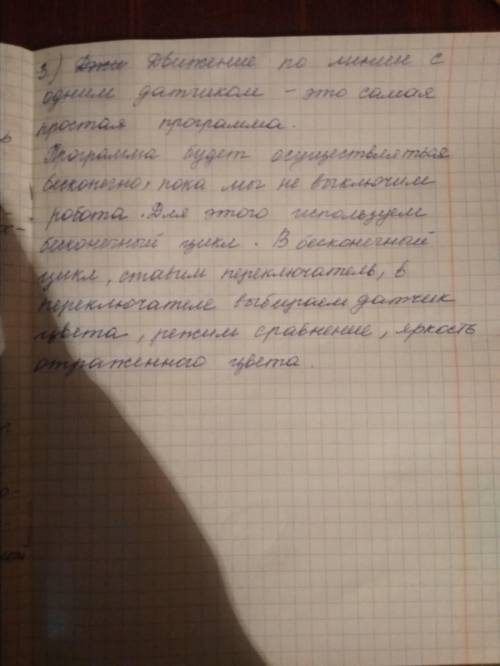 3) Движение по линии с
одним датчиком - это самая
простая программа.
Программа будет осуществляться
бесконечно, пока мы не выключим
робота. Для этого используем
бесконечный цикл. В бесконечный
цикл, ставим переключатель, в
переключателе выбираем датчик
цвета, режим сравнение, яркость
отраженного цвета.